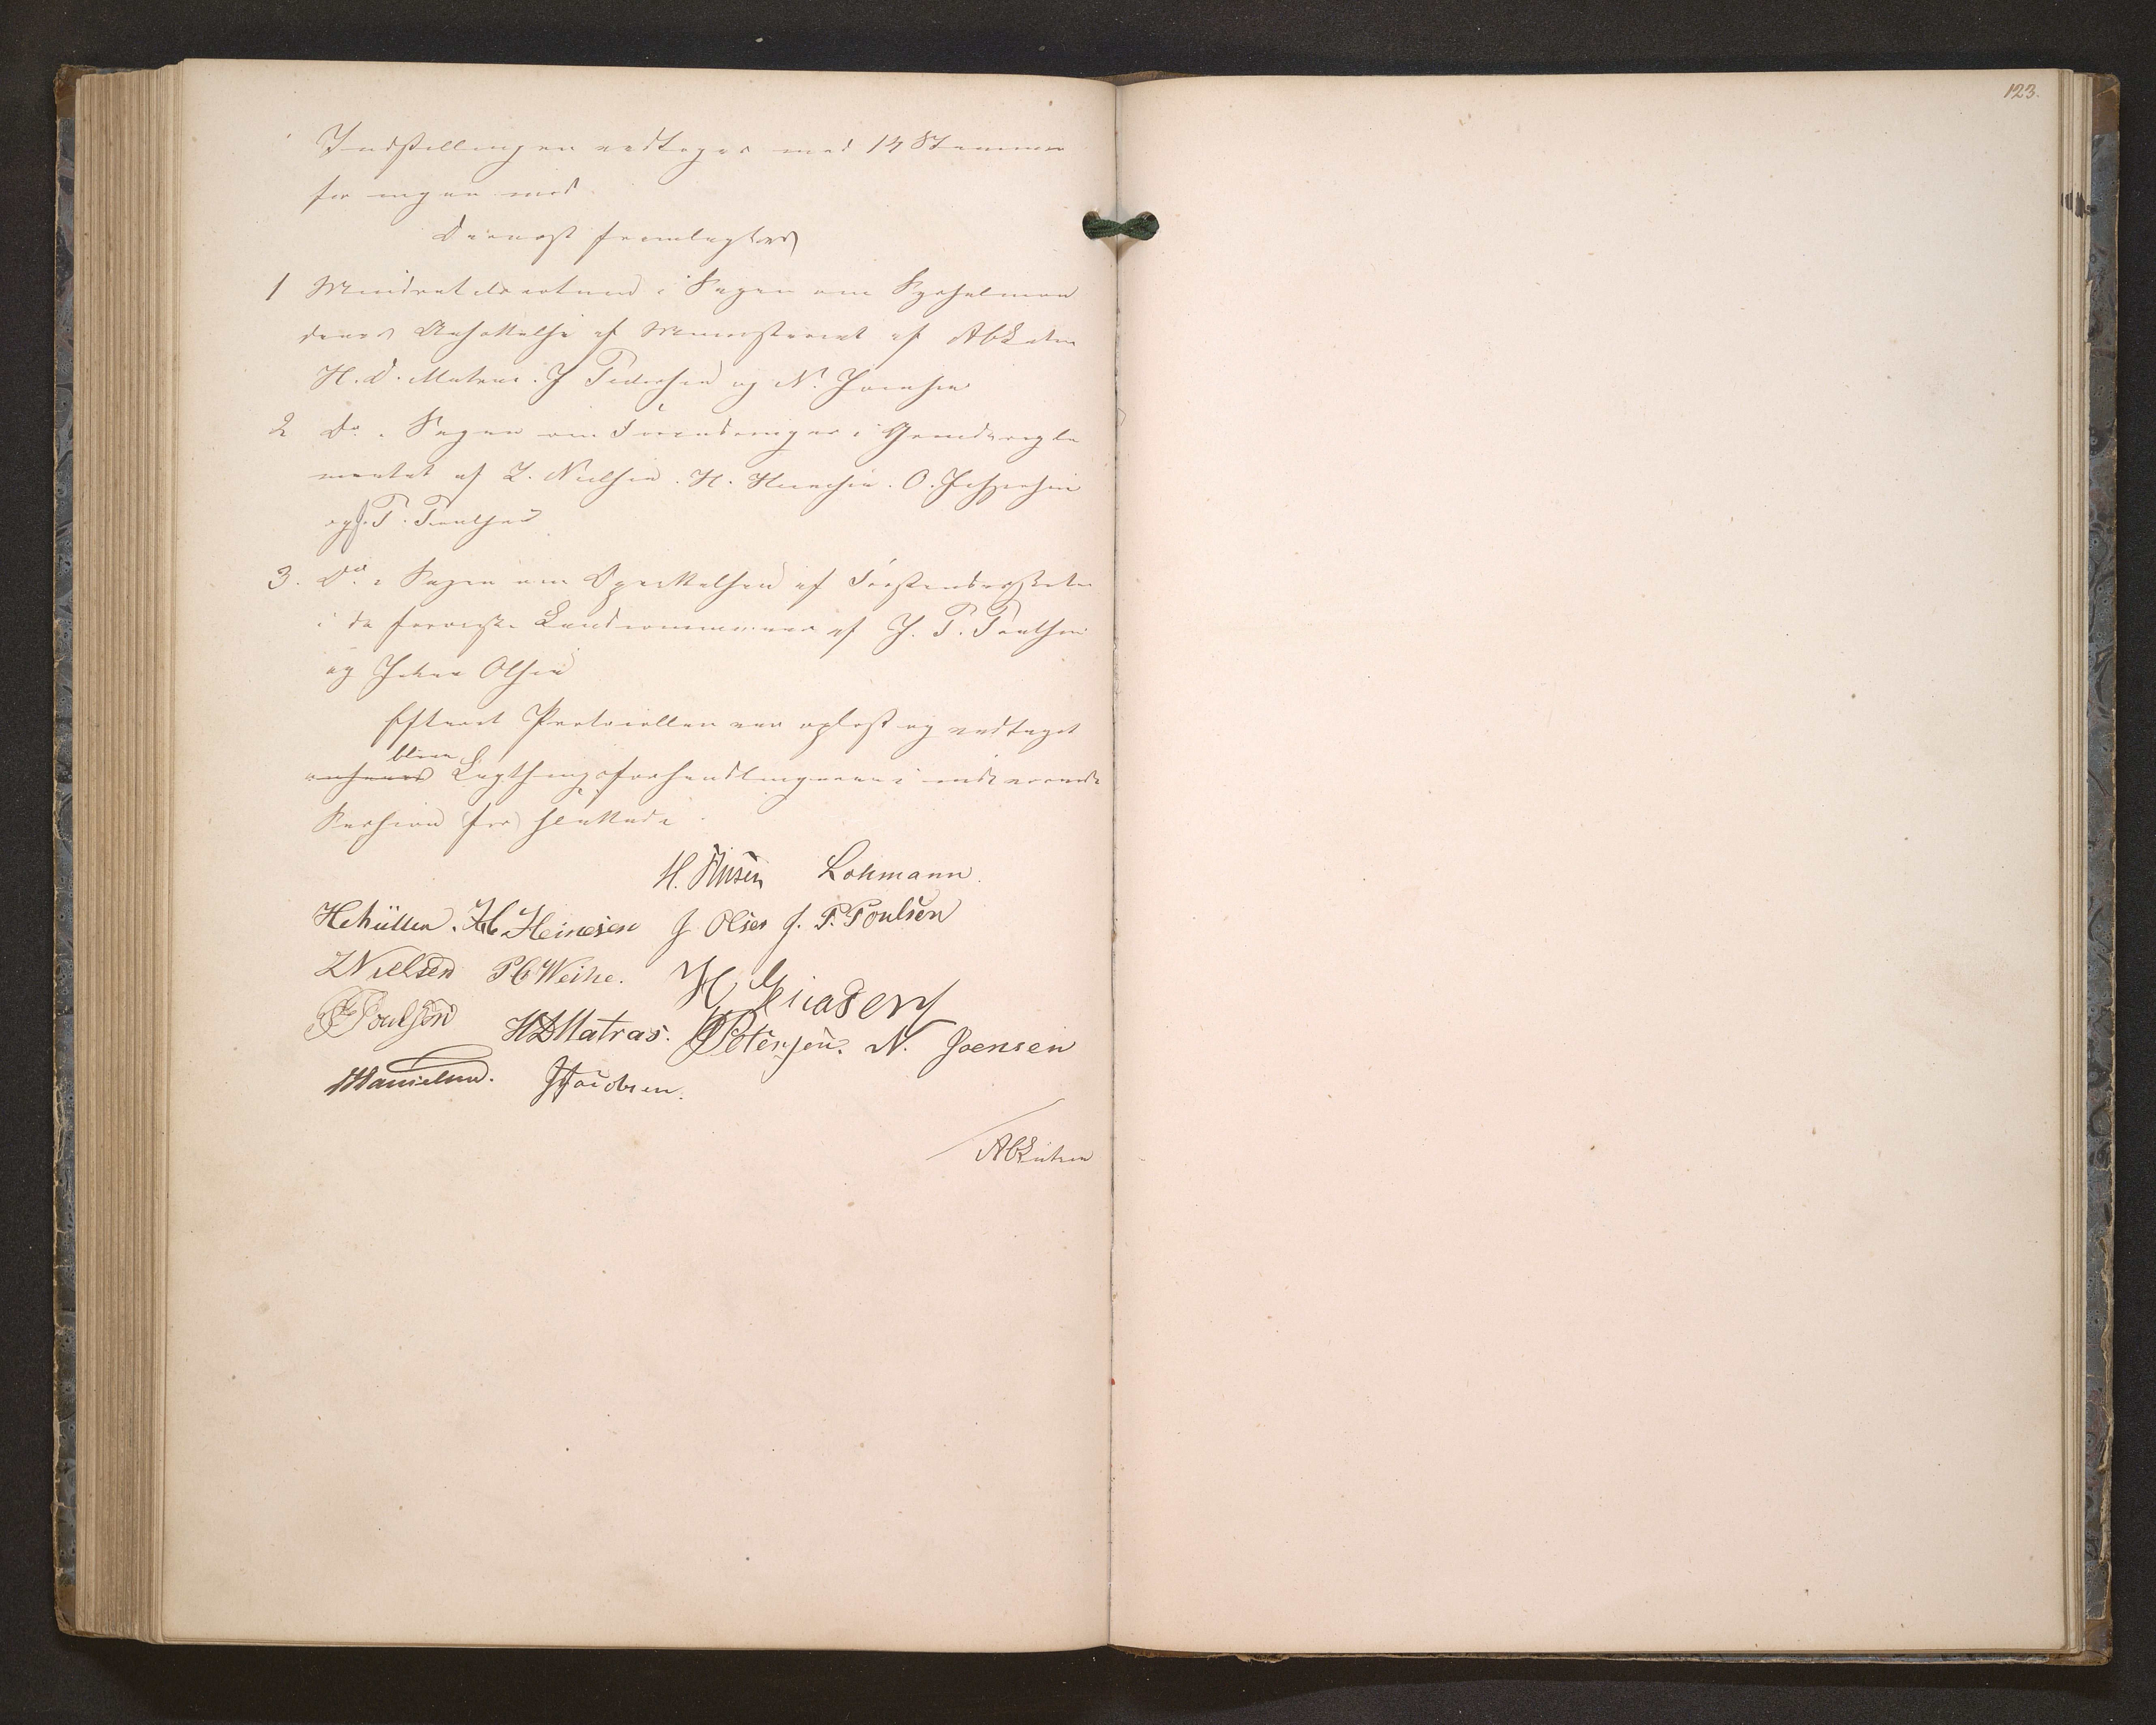 Indstillingen vedtoges med 14 Stemmer
for ingen mod.
Dernæst fremlagdes
1 Mindretalsvotum i Sagen om Sysselmæn
denes Ansættelse af Ministeriet af
H. D. Matras. J Pedersen og N. Joensen
2 Do. i Sagen om Forandringer i Grundregle
mentet af Z. Nielsen. H. O. Jespersen
og J. P. Poulsen
3. Do. i Sagen om Oprettelsen af
i de færøiske Landcommuner af J. P. Poulsen
og Johan Olsen
Efterat Protocollen var oplæst og vedtaget
bleve
Lagthingsforhandlingerne i indeværende
Session for sluttede.
H. Lohmann.
HCMüller. Heinesen J Olsen J. P. Poulsen
ZNielsen PCWeihe. H
Poulsen HDMatras. Petersen. N. Joensen
Danielsen. JJacobsen.
123.